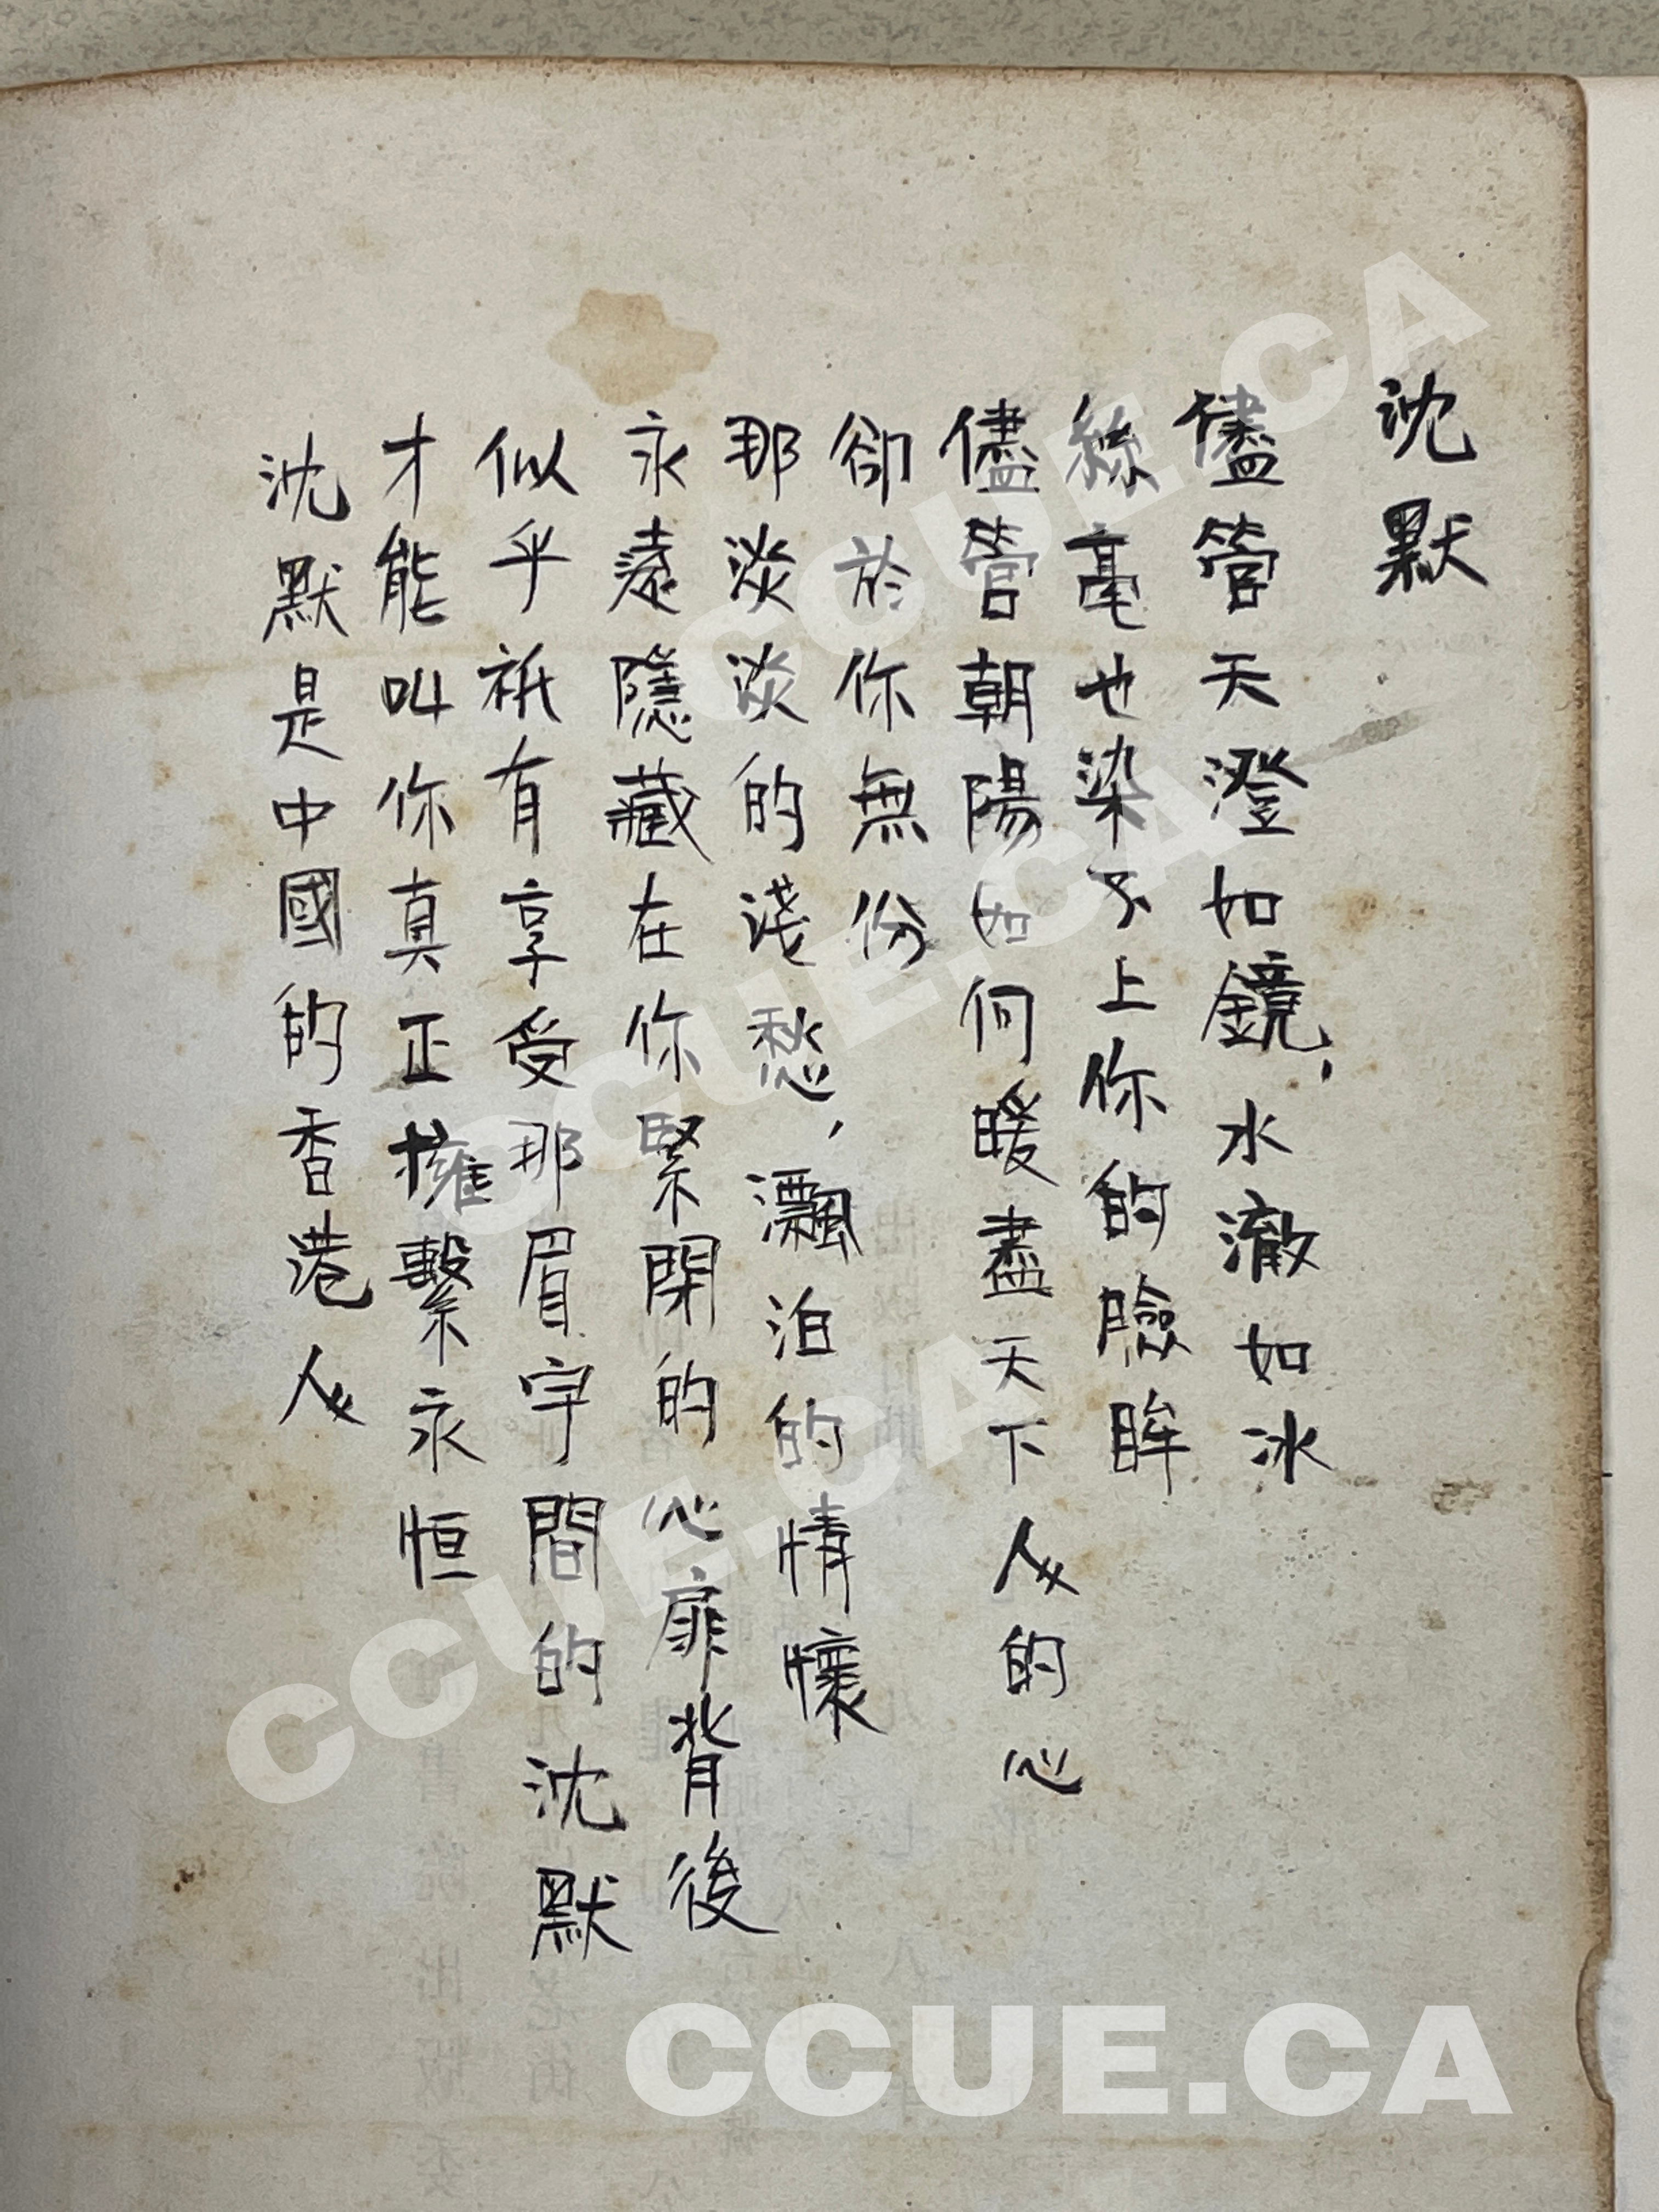 沈默
儘管天澄如鏡，水澈如冰
絲毫也染不上你的臉眸
儘管朝陽如何暖盡天下人的心
卻於你無份
那淡淡的淺愁，飄泊的情懷
永遠隱藏在你緊閉的心扉背後
似乎祇有享受那眉宇間的沈默
才能叫你真正擁繫永恒
沈默是中國的香港人
CCUE.CA
CCUE.CA
CCUE.CA
CCUE.CA